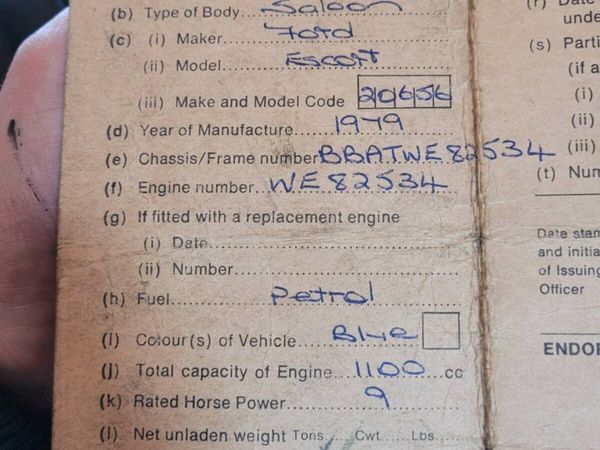 (b) Type of Body....Saloon
(c) (i) Maker....Ford
(ii) Model....Escort
(iii) Make and Model Code 20656
(d) Year of Manufacture....1979
(e) Chassis/Frame number BBATWE82534
(f) Engine number..WE82534
(g) If fitted with a replacement engine
(i) Date....
(ii) Number....
(h) Fuel....Petrol
(i) Colour(s) of Vehicle....Blue
(j) Total capacity of Engine...1100...cc
(k) Rated Horse Power....9
(l) Net unladen weight Tons....Cwt.....Lbs....
(r) Date
unde
(s) Parti
(if a
(i)
(ii)
(iii)
(t) Num
Date stam
and initia
of Issuing
Officer
ENDOR